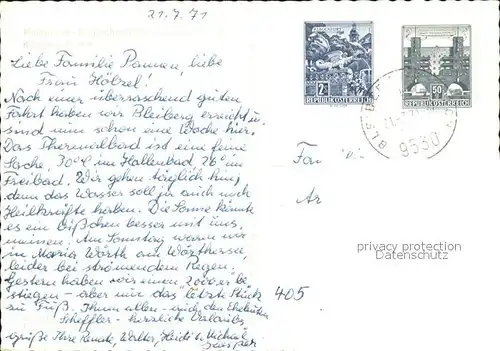 21.7.71
Liebe Familie Pannen, liebe
Frau Hölzel!
Nach einer überraschend guten
Fahrt haben wir Bleiberg erreicht u.
sind nun schon eine Woche hier.
Das Thermalbad ist eine feine
Sache, 30°C im Hallenbad, 26° im
Freibad. Wir gehen täglich hin,
denn das Wasser soll ja auch noch
Heilkräfte haben. Die Sonne könnte
es ein bißchen besser mit uns
meinen. Am Sonntag waren wir
in Maria Wörth am Wörthersee,
leider bei strömendem Regen.
Gestern haben wir einen 2000er be-
stiegen – aber nur das letzte Stück
zu Fuß. Ihnen allen – auch den Eheleuten
Scheffler – herzliche Urlaubs-
grüße Ihre Renate, Walter, Heidi u. Michael
REPUBLIK ÖSTERREICH
REPUBLIK ÖSTERREICH
50
9530
Fam
Ar
405
privacy protection
Datenschutz